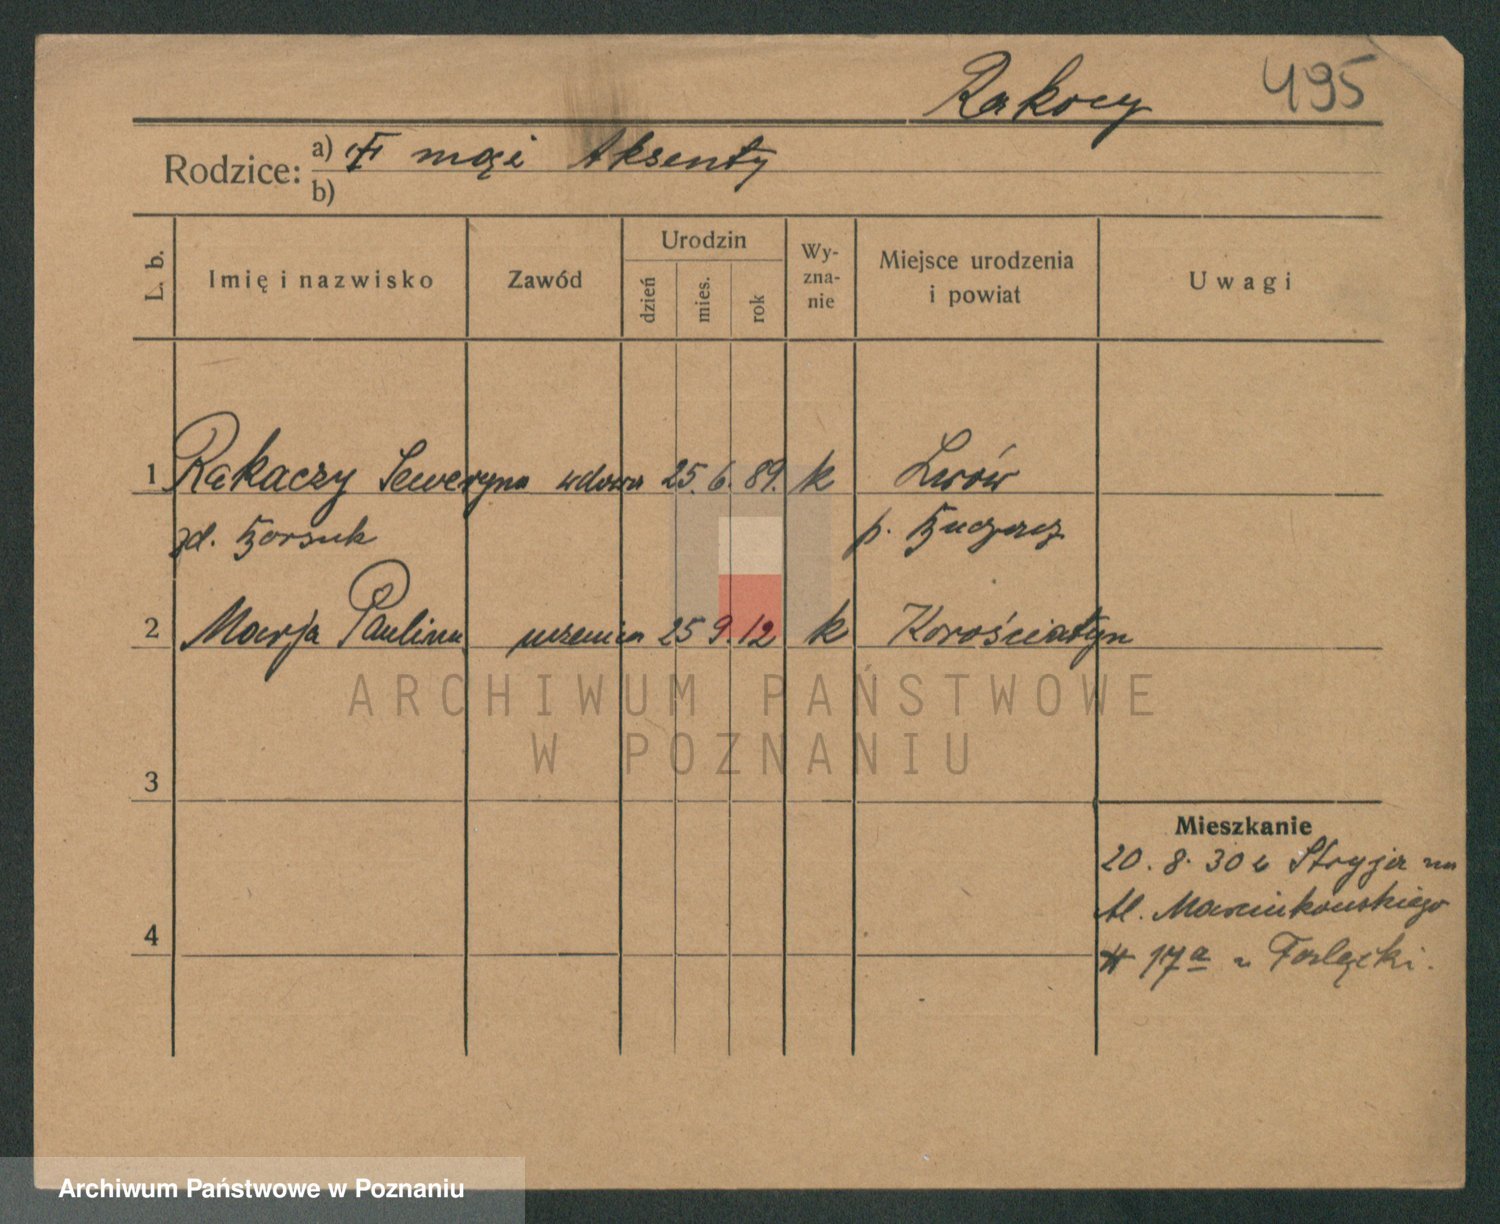 Rakocy 495
Rodzice: a) mąż Aksenty
b)
L. b. Imię i nazwisko Zawód Urodzin dzień mies. rok Wy-zna-nie Miejsce urodzenia i powiat Uwagi
1 Rakaczy Seweryna wdowa 25. 6. 89. k Lwów
zd. Borsuk p. Buczacz
2 Marja Paulina uczenica 25 9. 12 k Korościatyn
ARCHIWUM PAŃSTWOWE
W POZNANIU
3
Mieszkanie
20. 8. 30 z Stryja na
Al. Marcinkowskiego
4
17a u
Archiwum Państwowe w Poznaniu